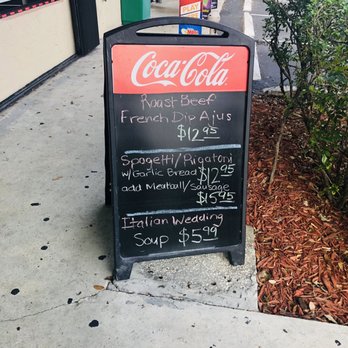 PLAY
Coca-Cola
Roast Beef
French Dip Ajus
$12.95
Spagetti/Rigatoni
w/Garlic Bread $12.95
add Meatball/Sausage
$15.95
Italian Wedding
Soup $5.99